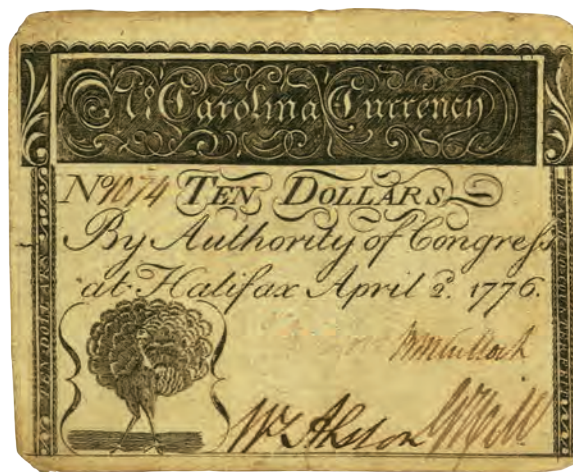 No. Carolina Currency
No. 1074 TEN DOLLARS
By Authority of Congress
at Halifax April 2d. 1776.
Wm Alston